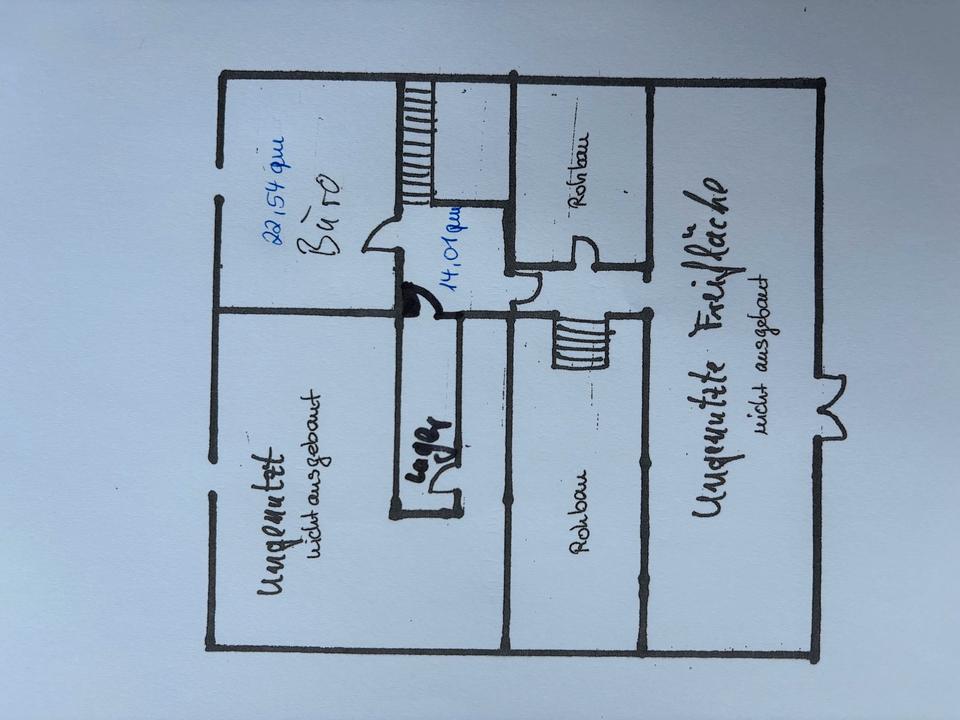 22,54 qm
Büro
14,01 qm
Rohbau
Ungenutzte Freifläche
nicht ausgebaut
Ungenutzt
nicht ausgebaut
Lager
Rohbau